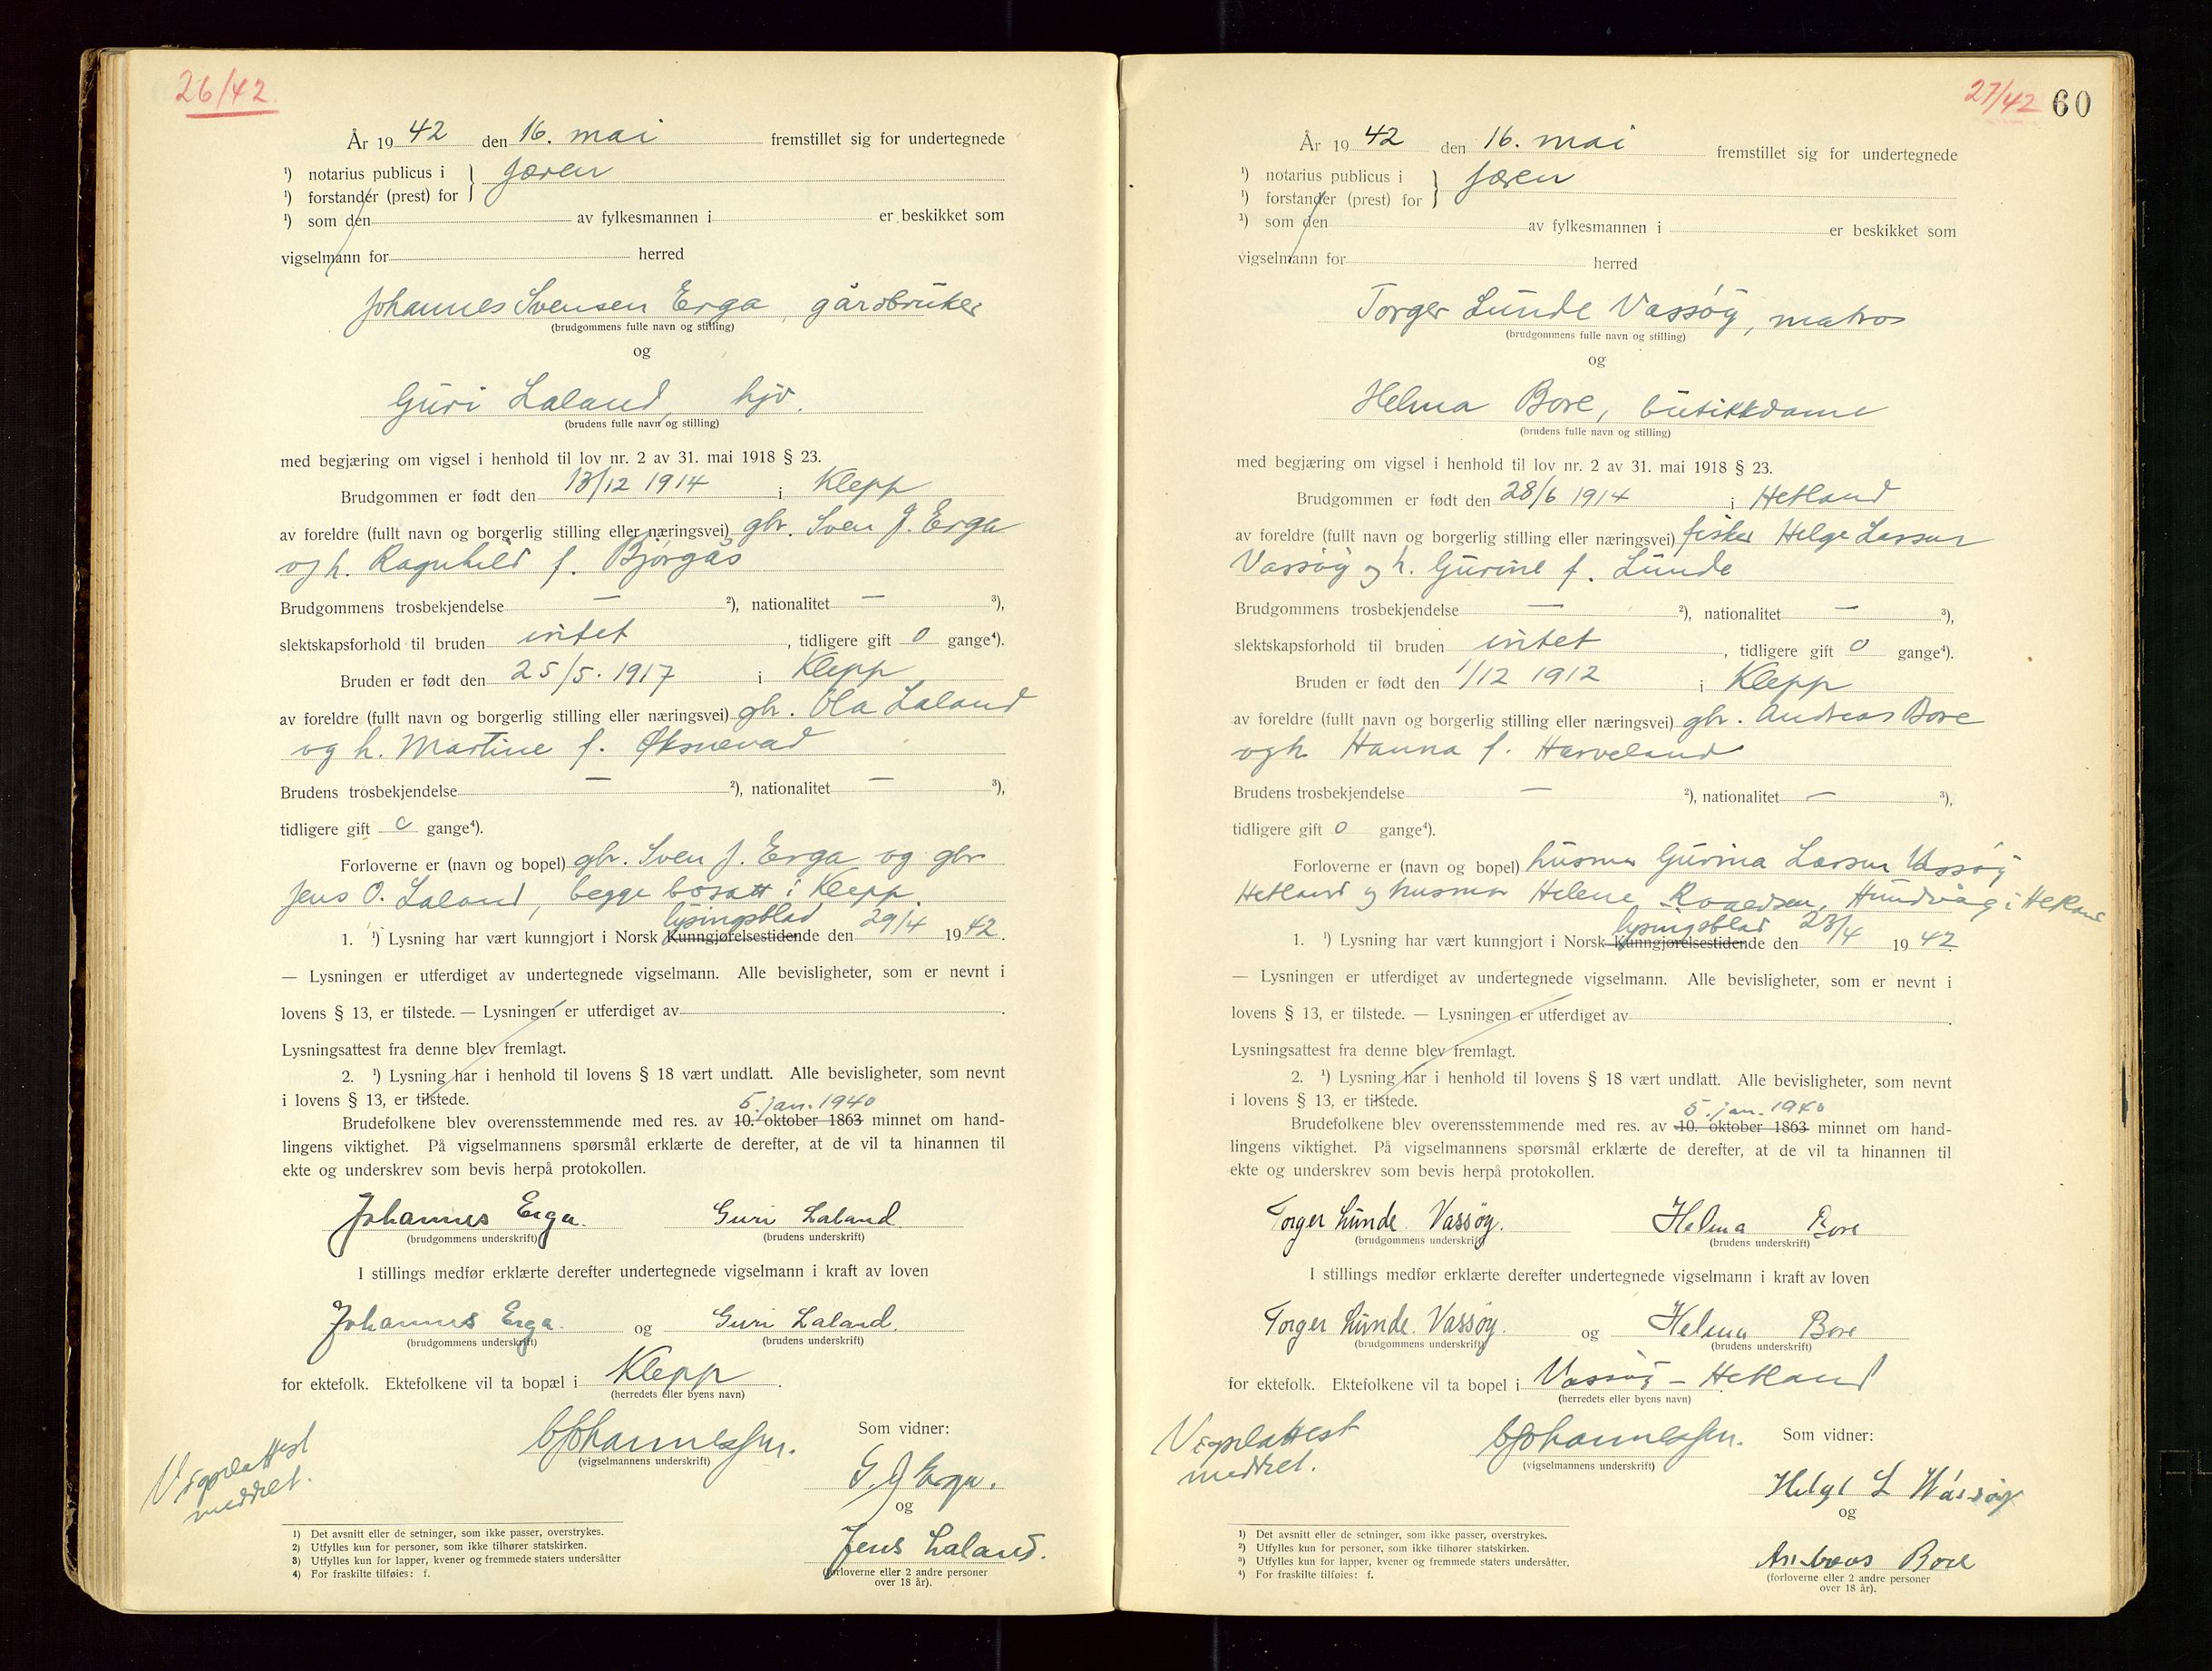 26/42.
År 1942 den 16. mai fremstillet sig for undertegnede
¹) notarius publicus i } Jæren
¹) forstander (prest) for
¹) som den av fylkesmannen i er beskikket som
vigselmann for herred
Johannes Svensen Erga, gårdbruker
(brudgommens fulle navn og stilling)
og
Guri Laland, hjv.
(brudens fulle navn og stilling)
med begjæring om vigsel i henhold til lov nr. 2 av 31. mai 1918 § 23.
Brudgommen er født den 13/12 1914 i Klepp
av foreldre (fullt navn og borgerlig stilling eller næringsvei) gbr. Sven J. Erga
og h. Ragnhild f. Bjørgås
Brudgommens trosbekjendelse — ²), nationalitet — ³),
slektskapsforhold til bruden intet, tidligere gift 0 gange⁴).
Bruden er født den 25/5. 1917 i Klepp
av foreldre (fullt navn og borgerlig stilling eller næringsvei) gbr. Ola Laland
og h. Martine f. Øksnevad
Brudens trosbekjendelse — ²), nationalitet — ³),
tidligere gift 0 gange⁴).
Forloverne er (navn og bopel) gbr. Sven J. Erga og gbr
Jens O. Laland, begge bosatt i Klepp.
lysingsblad
1. ¹) Lysning har vært kunngjort i Norsk Kunngjørelsestidende den 29/4 1942.
— Lysningen er utferdiget av undertegnede vigselmann. Alle bevisligheter, som er nevnt i
lovens § 13, er tilstede. — Lysningen er utferdiget av .
Lysningsattest fra denne blev fremlagt.
2. ¹) Lysning har i henhold til lovens § 18 vært undlatt. Alle bevisligheter, som nevnt
i lovens § 13, er tilstede.
5. jan. 1940
Brudefolkene blev overensstemmende med res. av 10. oktober 1863 minnet om hand-
lingens viktighet. På vigselmannens spørsmål erklærte de derefter, at de vil ta hinannen til
ekte og underskrev som bevis herpå protokollen.
Johannes Erga. Guri Laland
(brudgommens underskrift) (brudens underskrift)
I stillings medfør erklærte derefter undertegnede vigselmann i kraft av loven
Johannes Erga. og Guri Laland.
(brudgommens underskrift) (brudens underskrift)
for ektefolk. Ektefolkene vil ta bopæl i Klepp.
(herredets eller byens navn)
Som vidner:
Johannessen.
(vigselmannens underskrift)
Vigselattest
meddelt.
S. J Erga.
og
Jens Laland.
(forloverne eller 2 andre personer
over 18 år).
1) Det avsnitt eller de setninger, som ikke passer, overstrykes.
2) Utfylles kun for personer, som ikke tilhører statskirken.
3) Utfylles kun for lapper, kvener og fremmede staters undersåtter
4) For fraskilte tilføies: f.
27/42 60
År 1942 den 16. mai fremstillet sig for undertegnede
¹) notarius publicus i } Jæren
¹) forstander (prest) for
¹) som den av fylkesmannen i er beskikket som
vigselmann for herred
Torger Lunde Vassøy, matros
(brudgommens fulle navn og stilling)
og
Helma Bore, butikkdame
(brudens fulle navn og stilling)
med begjæring om vigsel i henhold til lov nr. 2 av 31. mai 1918 § 23.
Brudgommen er født den 28/6 1914 i Hetland
av foreldre (fullt navn og borgerlig stilling eller næringsvei) fisker Helge Larsen
Vassøy og h. Gurine f. Lunde
Brudgommens trosbekjendelse — ²), nationalitet — ³),
slektskapsforhold til bruden intet, tidligere gift 0 gange⁴).
Bruden er født den 1/12 1912 i Klepp
av foreldre (fullt navn og borgerlig stilling eller næringsvei) gbr. Andreas Bore
og h Hanna f. Harveland
Brudens trosbekjendelse — ²), nationalitet — ³),
tidligere gift 0 gange⁴).
Forloverne er (navn og bopel) husmor Gurina Larsen Vassøy
Hetland og husmor Helene Roaldsen, Hundvåg i Hetland
lysingsblad
1. ¹) Lysning har vært kunngjort i Norsk Kunngjørelsestidende den 28/4 1942.
— Lysningen er utferdiget av undertegnede vigselmann. Alle bevisligheter, som er nevnt i
lovens § 13, er tilstede. — Lysningen er utferdiget av .
Lysningsattest fra denne blev fremlagt.
2. ¹) Lysning har i henhold til lovens § 18 vært undlatt. Alle bevisligheter, som nevnt
i lovens § 13, er tilstede.
5. jan. 1940
Brudefolkene blev overensstemmende med res. av 10. oktober 1863 minnet om hand-
lingens viktighet. På vigselmannens spørsmål erklærte de derefter, at de vil ta hinannen til
ekte og underskrev som bevis herpå protokollen.
Torger Lunde Vassøy. Helma Bore
(brudgommens underskrift) (brudens underskrift)
I stillings medfør erklærte derefter undertegnede vigselmann i kraft av loven
Torger Lunde Vassøy. og Helma Bore
(brudgommens underskrift) (brudens underskrift)
for ektefolk. Ektefolkene vil ta bopel i Vassøy – Hetland
(herredets eller byens navn)
Vigselattest
meddelt.
Johannessen.
(vigselmannens underskrift)
Som vidner:
Helge L Wassøy
og
Andreas Bore
(forloverne eller 2 andre personer
over 18 år).
1) Det avsnitt eller de setninger, som ikke passer, overstrykes.
2) Utfylles kun for personer, som ikke tilhører statskirken.
3) Utfylles kun for lapper, kvener og fremmede staters undersåtter.
4) For fraskilte tilføies: f.